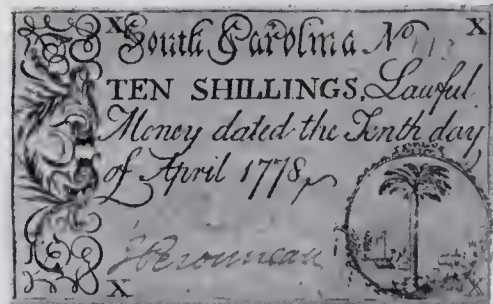 X South Carolina No. 113 X
TEN SHILLINGS, Lawful
Money dated the Tenth day
of April 1778
HPeronneau
X X